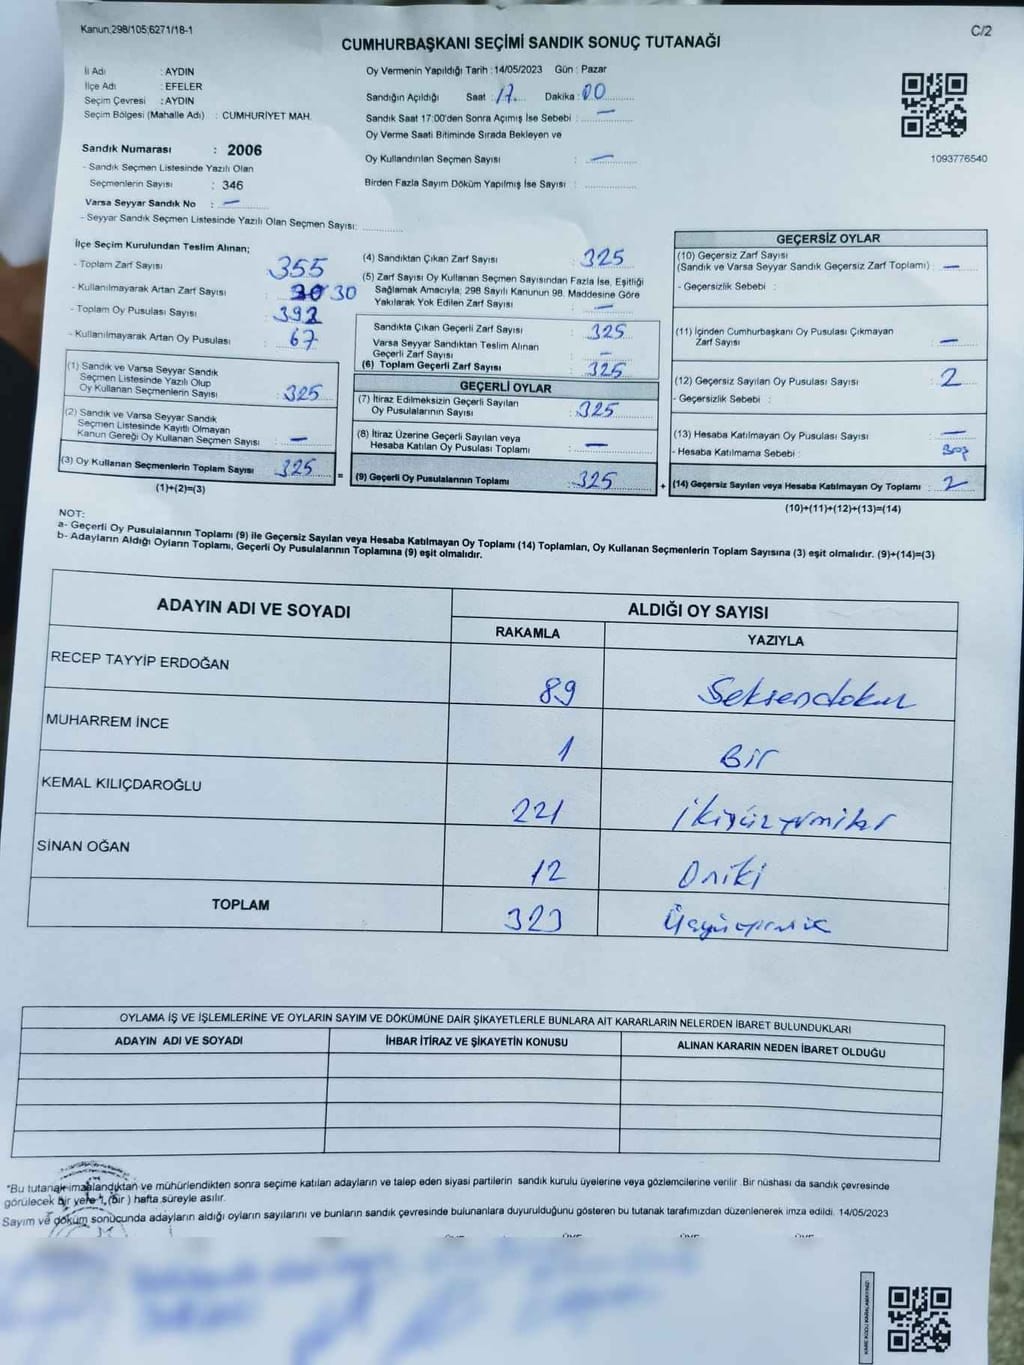 Kanun:298/105;6271/18-1
C/2
CUMHURBAŞKANI SEÇİMİ SANDIK SONUÇ TUTANAĞI
İl Adı : AYDIN
İlçe Adı : EFELER
Seçim Çevresi : AYDIN
Seçim Bölgesi (Mahalle Adı) : CUMHURİYET MAH.
Oy Vermenin Yapıldığı Tarih : 14/05/2023 Gün : Pazar
Sandığın Açıldığı Saat : 17 Dakika : 00
Sandık Saat 17:00'den Sonra Açımış İse Sebebi : —
Oy Verme Saati Bitiminde Sırada Bekleyen ve
Oy Kullandırılan Seçmen Sayısı : —
Birden Fazla Sayım Döküm Yapılmış İse Sayısı :
1093776540
Sandık Numarası : 2006
- Sandık Seçmen Listesinde Yazılı Olan
Seçmenlerin Sayısı : 346
Varsa Seyyar Sandık No : —
- Seyyar Sandık Seçmen Listesinde Yazılı Olan Seçmen Sayısı:
İlçe Seçim Kurulundan Teslim Alınan;
- Toplam Zarf Sayısı : 355
- Kullanılmayarak Artan Zarf Sayısı : 30 30
- Toplam Oy Pusulası Sayısı : 392
- Kullanılmayarak Artan Oy Pusulası : 67
(1) Sandık ve Varsa Seyyar Sandık
Seçmen Listesinde Yazılı Olup
Oy Kullanan Seçmenlerin Sayısı : 325
(2) Sandık ve Varsa Seyyar Sandık
Seçmen Listesinde Kayıtlı Olmayan
Kanun Gereği Oy Kullanan Seçmen Sayısı : —
(3) Oy Kullanan Seçmenlerin Toplam Sayısı : 325
(1)+(2)=(3)
=
(4) Sandıktan Çıkan Zarf Sayısı : 325
(5) Zarf Sayısı Oy Kullanan Seçmen Sayısından Fazla İse, Eşitliği
Sağlamak Amacıyla; 298 Sayılı Kanunun 98. Maddesine Göre
Yakılarak Yok Edilen Zarf Sayısı : —
Sandıkta Çıkan Geçerli Zarf Sayısı : 325
Varsa Seyyar Sandıktan Teslim Alınan
Geçerli Zarf Sayısı : —
(6) Toplam Geçerli Zarf Sayısı : 325
GEÇERLİ OYLAR
(7) İtiraz Edilmeksizin Geçerli Sayılan
Oy Pusulalarının Sayısı : 325
(8) İtiraz Üzerine Geçerli Sayılan veya
Hesaba Katılan Oy Pusulası Toplamı : —
(9) Geçerli Oy Pusulalarının Toplamı : 325
+
GEÇERSİZ OYLAR
(10) Geçersiz Zarf Sayısı
(Sandık ve Varsa Seyyar Sandık Geçersiz Zarf Toplamı) : —
- Geçersizlik Sebebi :
(11) İçinden Cumhurbaşkanı Oy Pusulası Çıkmayan
Zarf Sayısı : —
(12) Geçersiz Sayılan Oy Pusulası Sayısı : 2
- Geçersizlik Sebebi :
(13) Hesaba Katılmayan Oy Pusulası Sayısı : —
- Hesaba Katılmama Sebebi : Boş
(14) Geçersiz Sayılan veya Hesaba Katılmayan Oy Toplamı : 2
(10)+(11)+(12)+(13)=(14)
NOT:
a- Geçerli Oy Pusulalarının Toplamı (9) ile Geçersiz Sayılan veya Hesaba Katılmayan Oy Toplamı (14) Toplamları, Oy Kullanan Seçmenlerin Toplam Sayısına (3) eşit olmalıdır. (9)+(14)=(3)
b- Adayların Aldığı Oyların Toplamı, Geçerli Oy Pusulalarının Toplamına (9) eşit olmalıdır.
ADAYIN ADI VE SOYADI
ALDIĞI OY SAYISI
RAKAMLA YAZIYLA
RECEP TAYYİP ERDOĞAN 89 Seksendokuz
MUHARREM İNCE 1 Bir
KEMAL KILIÇDAROĞLU 221 ikiyüzyirmibir
SİNAN OĞAN 12 Oniki
TOPLAM 323
OYLAMA İŞ VE İŞLEMLERİNE VE OYLARIN SAYIM VE DÖKÜMÜNE DAİR ŞİKAYETLERLE BUNLARA AİT KARARLARIN NELERDEN İBARET BULUNDUKLARI
ADAYIN ADI VE SOYADI İHBAR İTİRAZ VE ŞİKAYETİN KONUSU ALINAN KARARIN NEDEN İBARET OLDUĞU
*Bu tutanak imzalandıktan ve mühürlendikten sonra seçime katılan adayların ve talep eden siyasi partilerin sandık kurulu üyelerine veya gözlemcilerine verilir. Bir nüshası da sandık çevresinde
görülecek bir yere 1 (bir) hafta süreyle asılır.
Sayım ve döküm sonucunda adayların aldığı oyların sayılarını ve bunların sandık çevresinde bulunanlara duyurulduğunu gösteren bu tutanak tarafımızdan düzenlenerek imza edildi. 14/05/2023